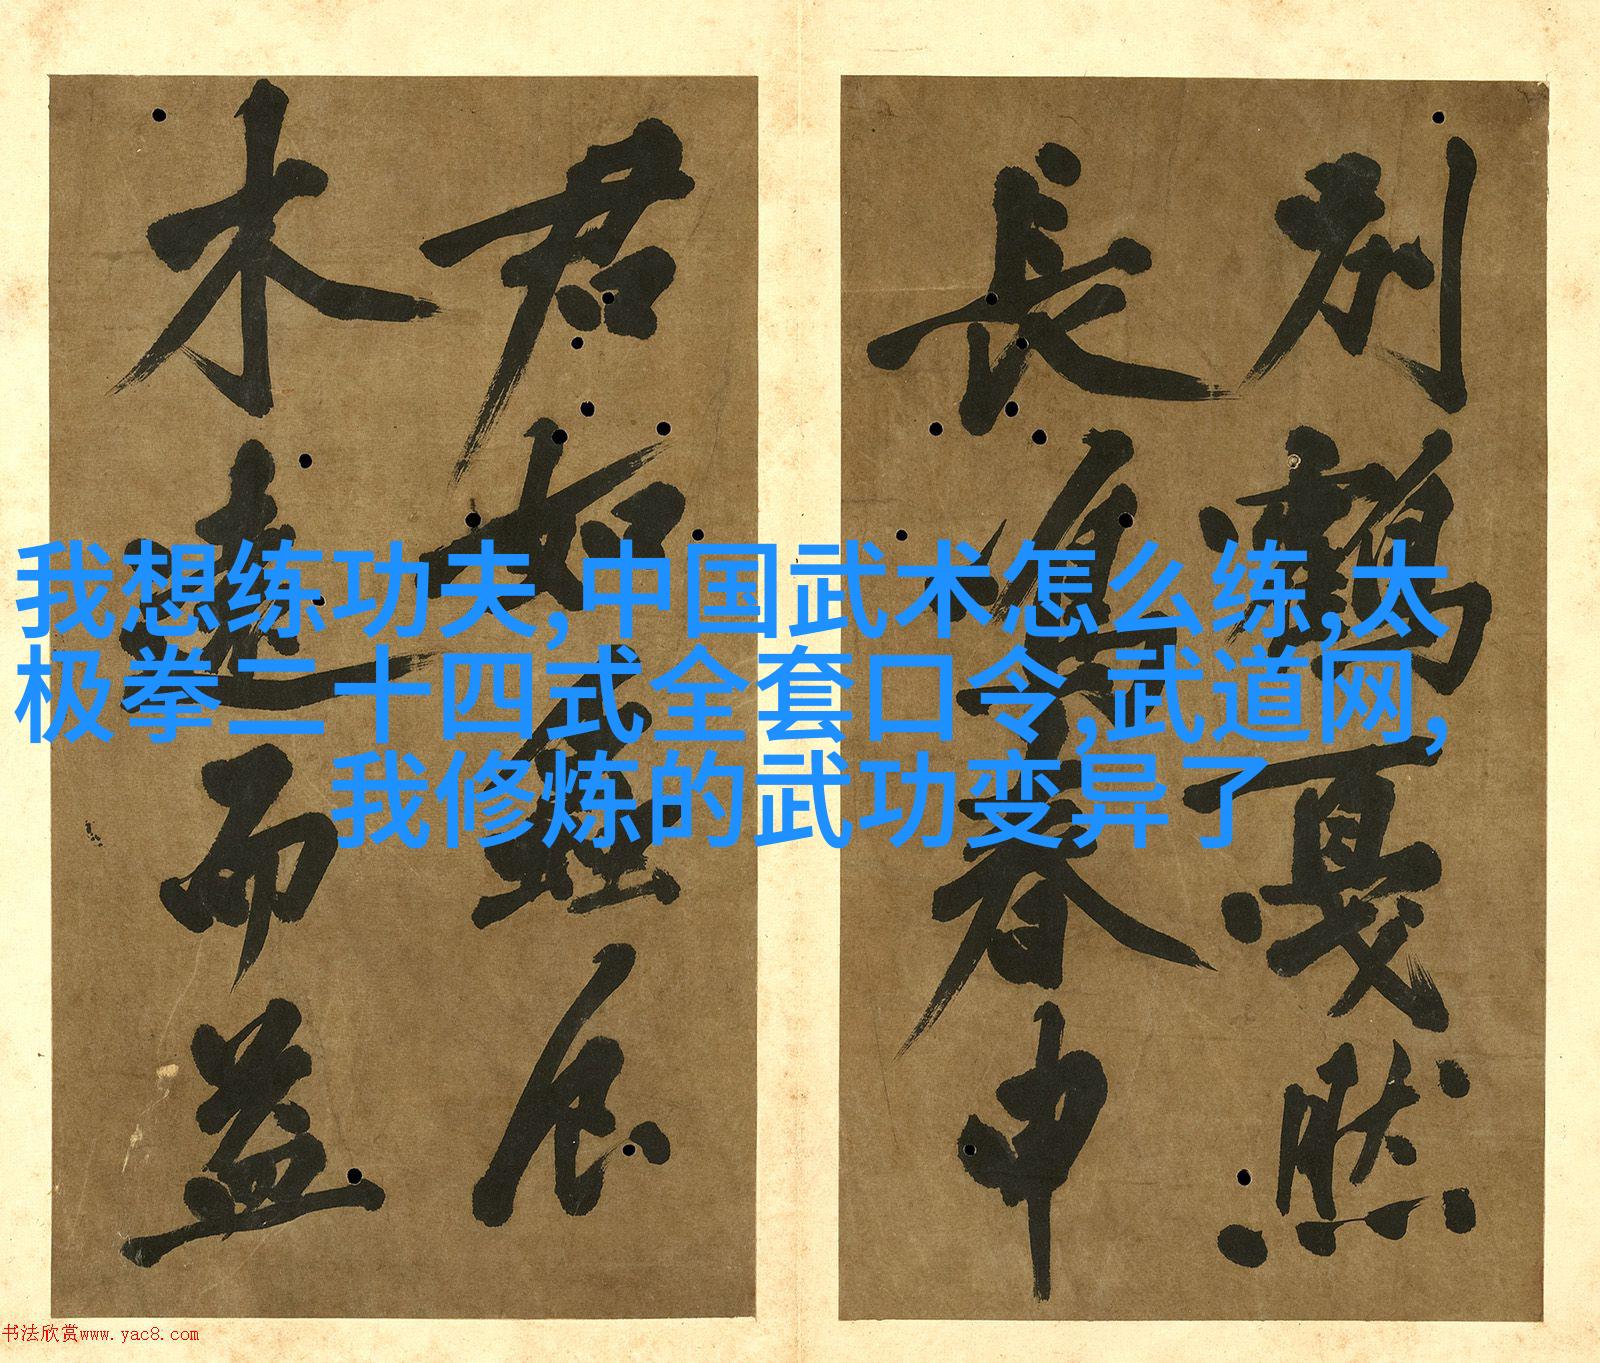 別鶴戛然
長春申
君如
木遠而益
我想练功夫,中国武术怎么练,太
极拳二十四式全套口令,武道网,
我修炼的武功变异了
书法欣赏www.yac8.com